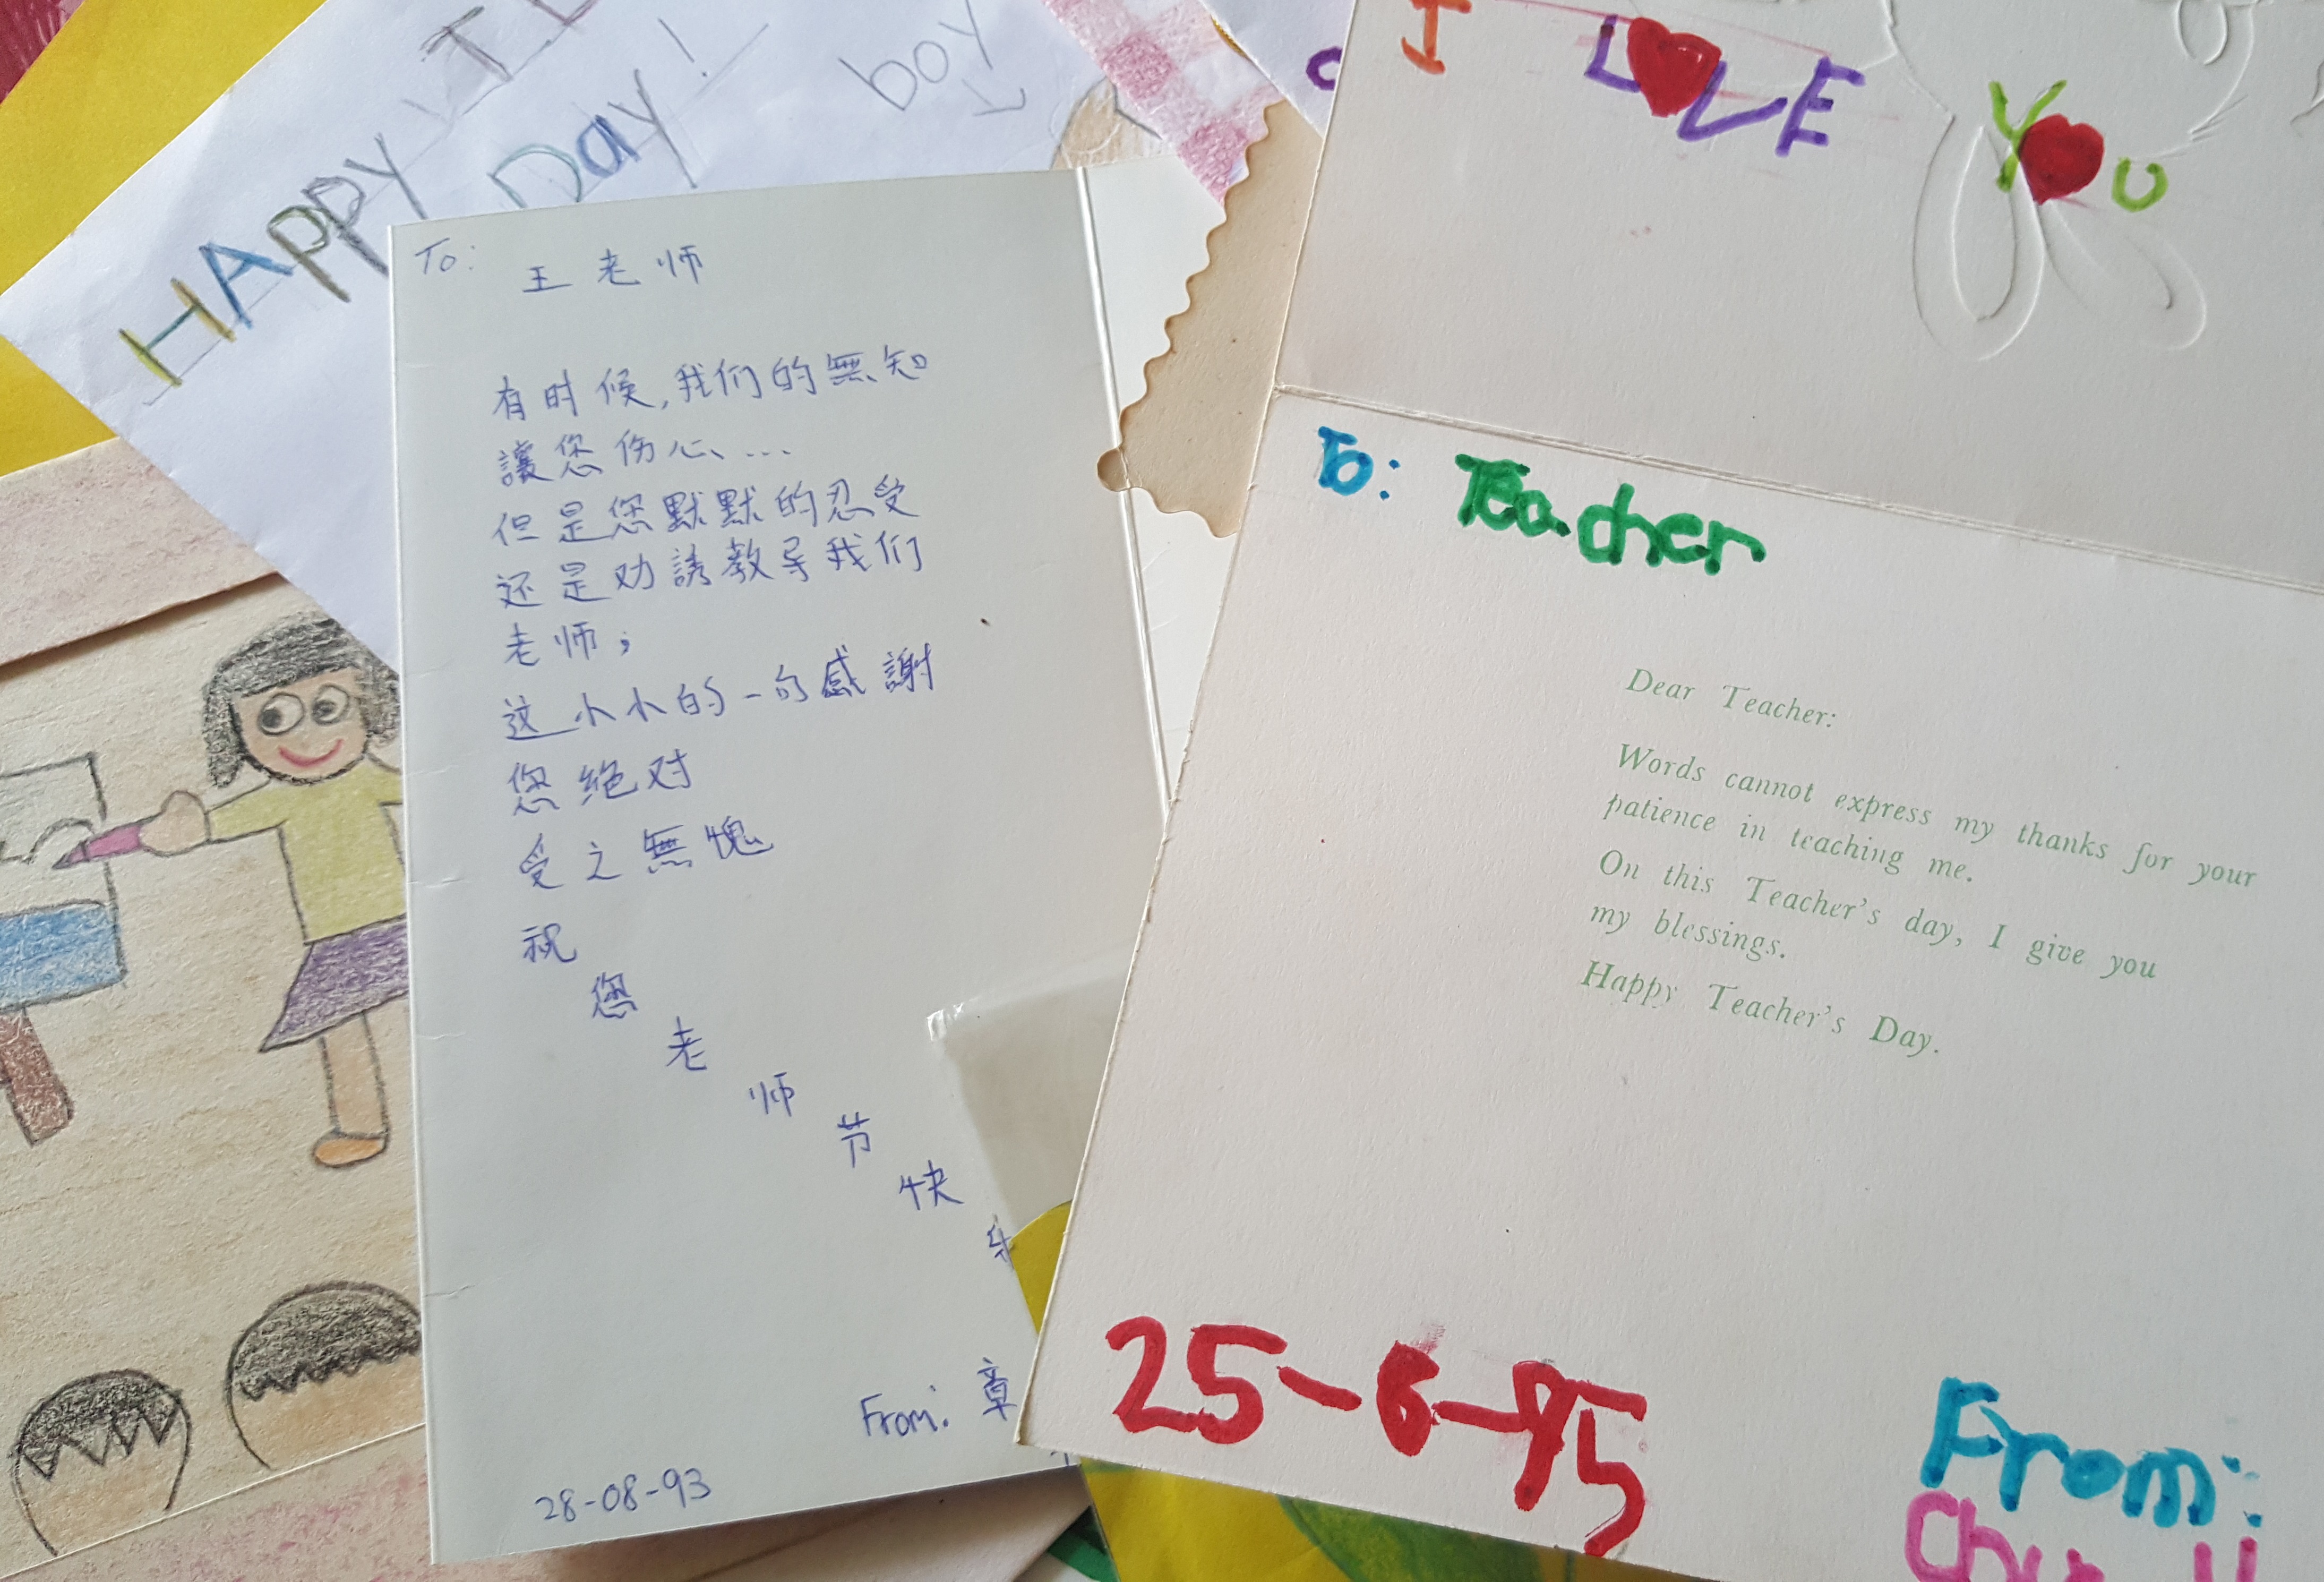 HAppy
Day!
boy
To: 王老师
有时候,我们的無知
讓您伤心...
但是您默默的忍受
还是劝誘教导我们
老师;
这小小的一句感謝
您絕对
受之無愧
祝
您
老
师
节
快
From: 章
28-08-93
I LOVE
YOU
To: Teacher
Dear Teacher:
Words cannot express my thanks for your
patience in teaching me.
On this Teacher's day, I give you
my blessings.
Happy Teacher's Day.
25-6-95
From: